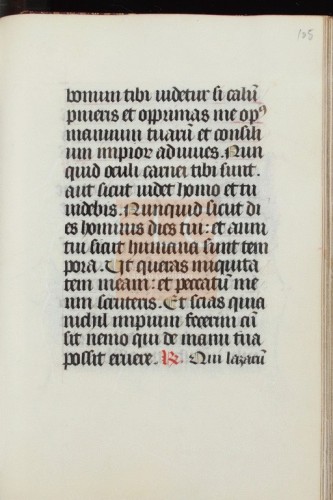 105
bonum tibi videtur si caluͫ
pnieris et opprimas me opꝰ
manuum tuarū et consili
um impior adiuues. Nun
quid oculi carnei tibi sunt.
aut sicut videt homo et tu
videbis. Nunquid sicut di
es hominis dies tui: et anni
tui sicut humana sunt tem
pora. Ut queras iniquita
tem meam: et peccatū me
um scruteris. Et scias quia
nichil impium fecerim cū
sit nemo qui de manu tua
possit eruere. R. Qui lazarū